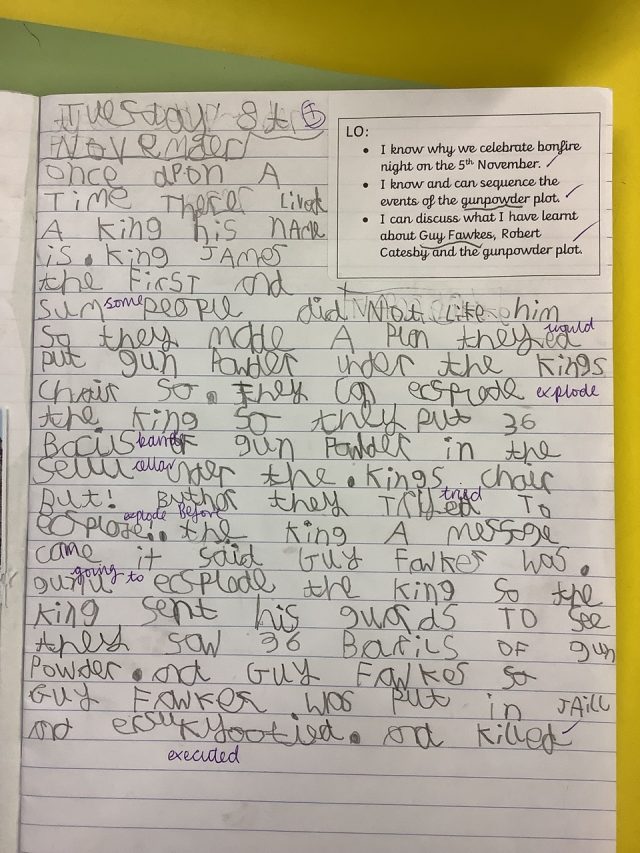 Tuesday 8t I
November
LO:
• I know why we celebrate bonfire
night on the 5th November. ✓
• I know and can sequence the
events of the gunpowder plot. ✓
• I can discuss what I have learnt
about Guy Fawkes, Robert
Catesby and the gunpowder plot.
once apon A
Time Theres Lived
A King his NAme
is. King JAmes
the First and
sum some PeoPLe did Not Like him
So they made A Plan they ed would
Put gun Powder under the kings
Chair so. they can ecsplode explode
the King so they Put 36
of gun Powder in the
cellar under the. Kings chair
But! they Tried tried To
ecsplode.. explode Before the King A messge
came it said Guy Fawkes was.
going to ecsplode the King so the
King sent his guards To See
they saw 36 Barils of gun
Powder. and Guy Fawkes so
Guy Fawkes was Put in JAill
and killed
executed